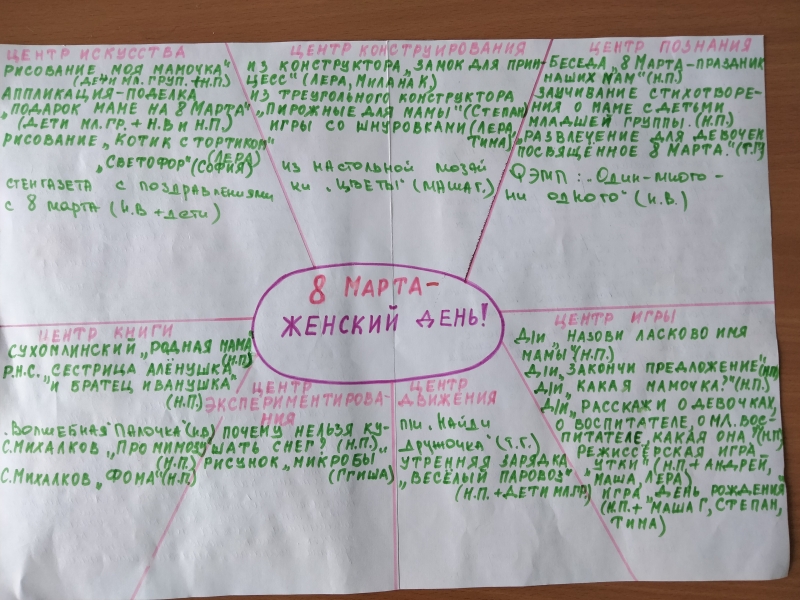 ЦЕНТР ИСКУССТВА
РИСОВАНИЕ „МОЯ МАМОЧКА"
(ДЕТИ МЛ. ГРУП. + Н.П)
АППЛИКАЦИЯ-ПОДЕЛКА
„ПОДАРОК МАМЕ НА 8 МАРТА"
(ДЕТИ МЛ. ГР. + Н.В и Н.П)
РИСОВАНИЕ „КОТИК С ТОРТИКОМ"
(ЛЕРА)
„СВЕТОФОР" (СОФИЯ)
СТЕНГАЗЕТА С ПОЗДРАВЛЕНИЯМИ
С 8 МАРТА (Н.В + ДЕТИ)
ЦЕНТР КОНСТРУИРОВАНИЯ
ИЗ КОНСТРУКТОРА „ЗАМОК ДЛЯ ПРИН-
ЦЕСС" (ЛЕРА, МИЛАНА К)
ИЗ ТРЕУГОЛЬНОГО КОНСТРУКТОРА
„ПИРОЖНЫЕ ДЛЯ МАМЫ" (СТЕПАН)
ИГРЫ СО ШНУРОВКАМИ (ЛЕРА,
ТИМА)
ИЗ НАСТОЛЬНОЙ МОЗАЙ
КИ „ЦВЕТЫ" (МАША Г.)
ЦЕНТР ПОЗНАНИЯ
БЕСЕДА „8 МАРТА-ПРАЗДНИК
НАШИХ МАМ" (Н.П)
ЗАУЧИВАНИЕ СТИХОТВОРЕ-
НИЯ О МАМЕ С ДЕТЬМИ
МЛАДШЕЙ ГРУППЫ. (Н.П)
„РАЗВЛЕЧЕНИЕ ДЛЯ ДЕВОЧЕК
ПОСВЯЩЁННОЕ 8 МАРТА." (Т.Г)
ФЭМП: „ОДИН-МНОГО-
НИ ОДНОГО" (Н.В.)
8 МАРТА-
ЖЕНСКИЙ ДЕНЬ!
ЦЕНТР КНИГИ
СУХОМЛИНСКИЙ „РОДНАЯ МАМА"
(Н.П)
Р.Н.С. „СЕСТРИЦА АЛЁНУШКА
И БРАТЕЦ ИВАНУШКА"
(Н.П)
„ВОЛШЕБНАЯ ПАЛОЧКА" (Н.В)
С.МИХАЛКОВ „ПРО МИМОЗУ"
(Н.П)
С.МИХАЛКОВ „ФОМА" (Н.П)
ЦЕНТР
ЭКСПЕРИМЕНТИРОВА-
НИЯ
ПОЧЕМУ НЕЛЬЗЯ КУ-
ШАТЬ СНЕГ? (Н.П.)
РИСУНОК „МИКРОБЫ"
(ГРИША)
ЦЕНТР
ДВИЖЕНИЯ
П/И „НАЙДИ
ДРУЖОЧКА" (Т.Г.)
УТРЕННЯЯ ЗАРЯДКА
„ВЕСЁЛЫЙ ПАРОВОЗ"
(Н.П. + ДЕТИ МЛ.ГР)
ЦЕНТР ИГРЫ
Д/И „НАЗОВИ ЛАСКОВО ИМЯ
МАМЫ" (Н.П.)
Д/И „ЗАКОНЧИ ПРЕДЛОЖЕНИЕ" (Н.П)
Д/И „КАКАЯ МАМОЧКА?" (Н.П.)
Д/И „РАССКАЖИ О ДЕВОЧКАХ,
О ВОСПИТАТЕЛЕ, О МЛ. ВОС-
ПИТАТЕЛЕ, КАКАЯ ОНА" (Н.П)
РЕЖИССЁРСКАЯ ИГРА
„УТКИ" (Н.П. + АНДРЕЙ,
МАША, ЛЕРА)
ИГРА „ДЕНЬ РОЖДЕНИЯ"
(Н.П. + МАША Г, СТЕПАН,
ТИМА)